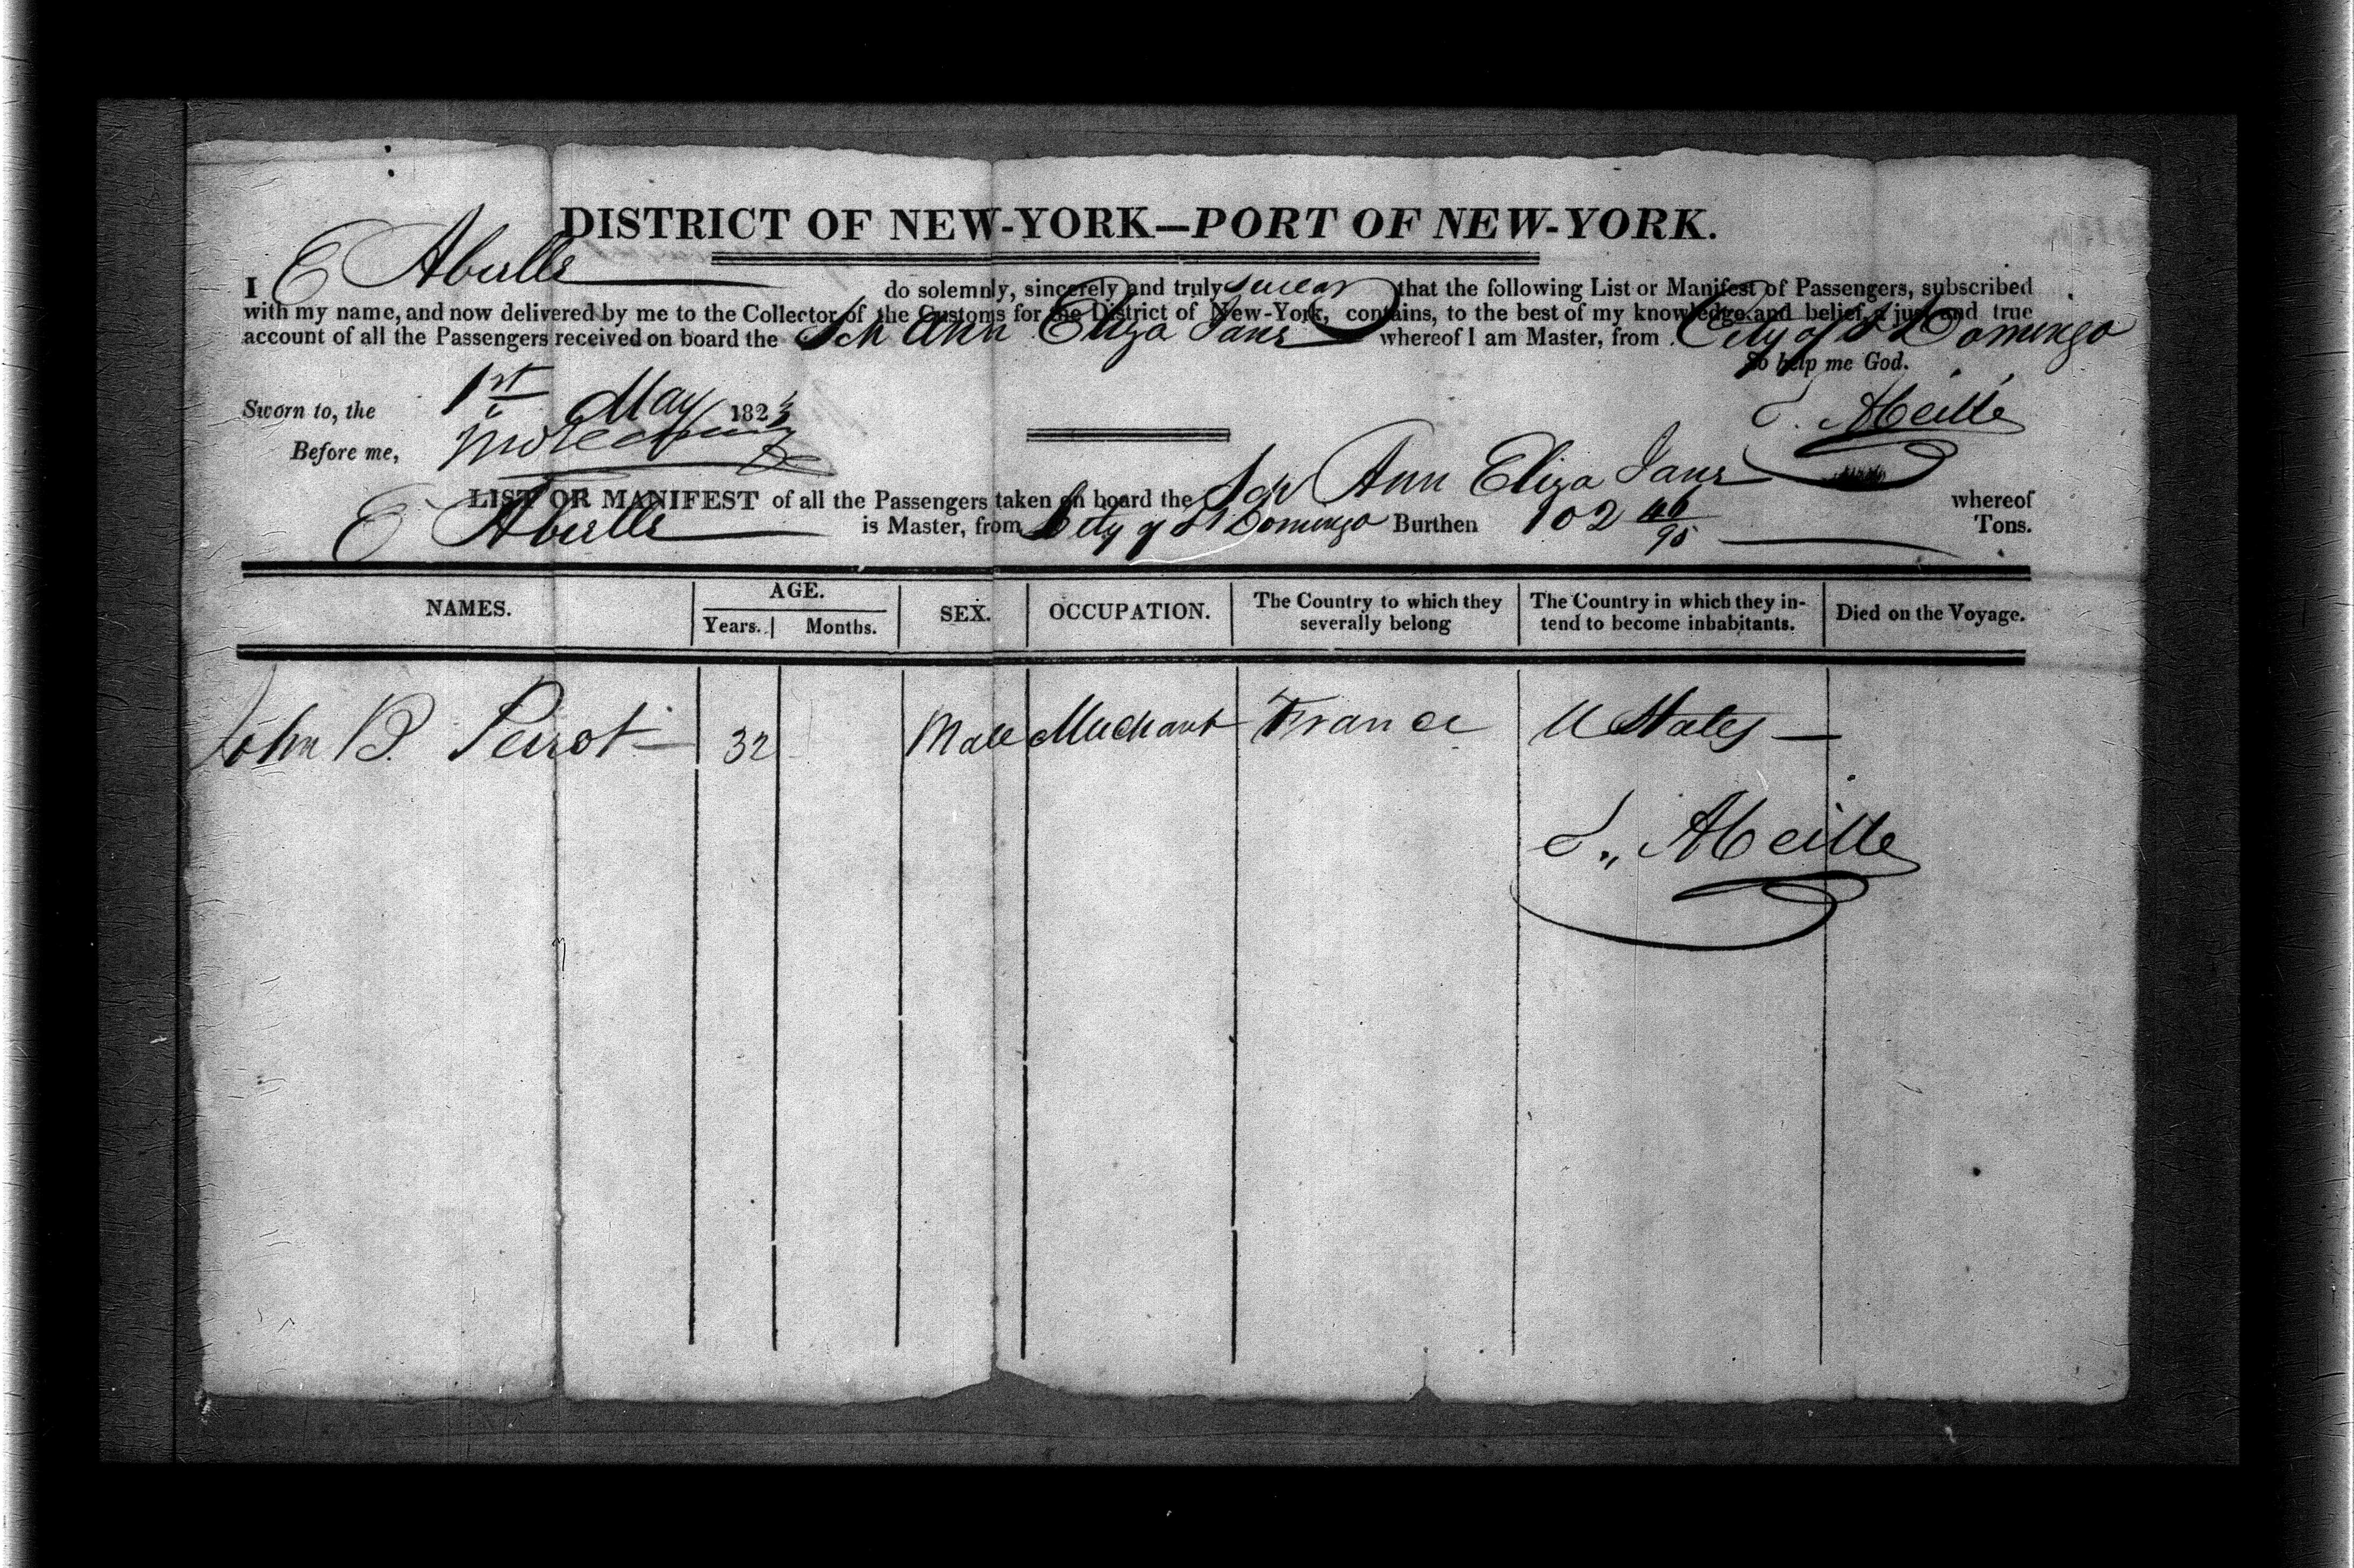 DISTRICT OF NEW-YORK—PORT OF NEW-YORK.
I E Abeille do solemnly, sincerely and truly swear that the following List or Manifest of Passengers, subscribed
with my name, and now delivered by me to the Collector of the Customs for the District of New-York, contains, to the best of my knowledge and belief, a just and true
account of all the Passengers received on board the Sch Ann Eliza Jane whereof I am Master, from City of St Domingo
So help me God.
Sworn to, the 1st May 1823
Before me,
Abeille
LIST OR MANIFEST of all the Passengers taken on board the Sch Ann Eliza Jane whereof
E Abeille is Master, from City of St Domingo Burthen 102 46/95 Tons.
NAMES. AGE. Years. Months. SEX. OCCUPATION. The Country to which they severally belong The Country in which they intend to become inhabitants. Died on the Voyage.
John B. Peirot 32 Male Merchant France U States —
Abeille